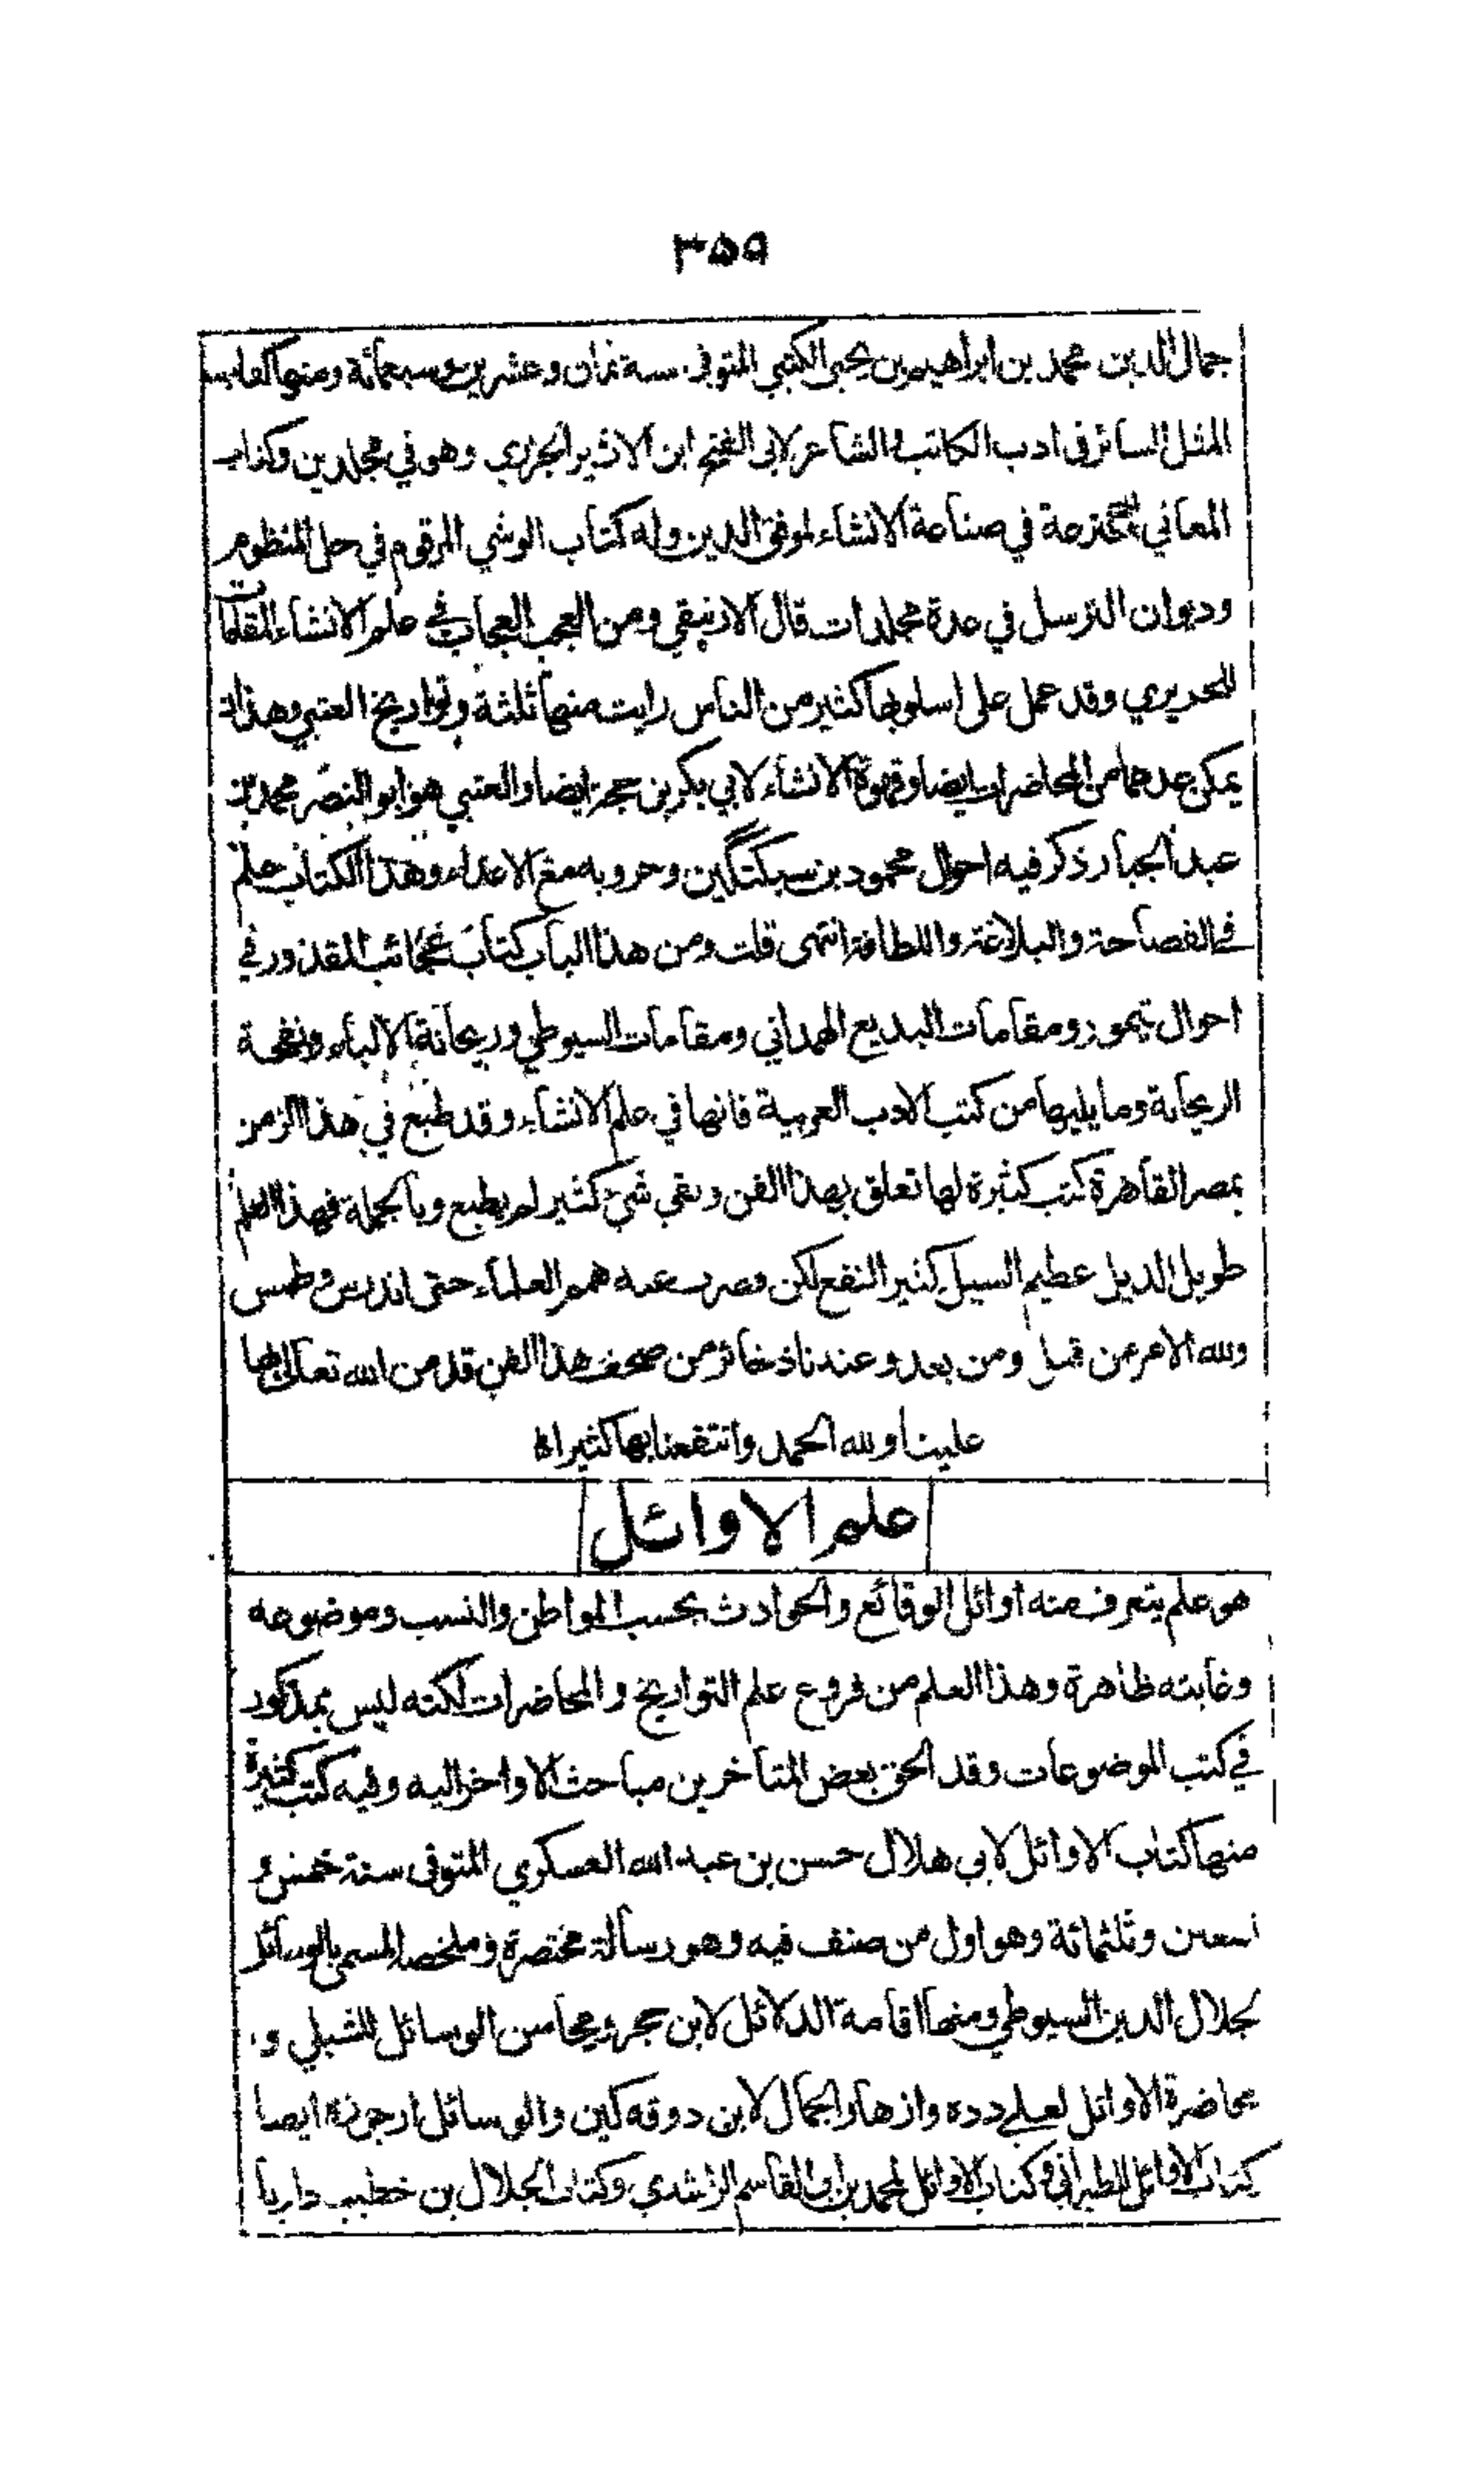 ٣٥٩
جمال الدين محمد بن ابراهيم بن يحيى الكتبي المتوفى سنة ثمان وعشرين وسبعمائة ومنها كتاب
المثل السائر فى ادب الكاتب والشاعر لابى الفتح ابن الاثير الجزري وهو في مجلدين وكتاب
المعاني المخترعة في صناعة الانشاء لموفق الدين وله كتاب الوشي المرقوم في حل المنظوم
وديوان الترسل في عدة مجلدات قال الارنيقي ومن العجب العجاب في علم الانشاء المقامات
للحريري وقد عمل على اسلوبها كثير من الناس رايت منها ثلثة وتواريخ العتبي وهذان
يمكن عدهما من المحاضرات ايضا وقهوة الانشاء لابي بكر بن حجة ايضا والعتبي هو ابو النصر محمد بن
عبد الجبار ذكر فيه احوال محمود بن سبكتگين وحروبه مع الاعداء وهذا الكتاب علم
في الفصاحة والبلاغة واللطافة انتهى قلت ومن هذا الباب كتاب عجائب المقدور في
احوال تيمور ومقامات البديع الهمداني ومقامات السيوطي وريحانة الالباء ونفحة
الريحانة وما يليها من كتب الادب العربية فانها في علم الانشاء وقد طبع في هذا الزمن
بمصر القاهرة كتب كثيرة لها تعلق بهذا الفن وبقي شيء كثير لم يطبع وبالجملة فهذا العلم
طويل الذيل عظيم السيل كثير النفع لكن قصرت عنه همم العلماء حتى اندرس وطمس
ولله الامر من قبل ومن بعد وعندنا ذخائر من صحف هذا الفن قد من الله تعالى بها
علينا ولله الحمد وانتفعنا بها كثيرا
علم الاوائل
هو علم يتعرف منه اوائل الوقائع والحوادث بحسب المواطن والنسب وموضوعه
وغايته ظاهرة وهذا العلم من فروع علم التواريخ والمحاضرات لكنه ليس بمذكور
في كتب الموضوعات وقد الحق بعض المتاخرين مباحث الاواخر اليه وفيه كتب كثيرة
منها كتاب الاوائل لابي هلال حسن بن عبد الله العسكري المتوفى سنة خمس و
تسعين وثلثمائة وهو اول من صنف فيه وهو رسالة مختصرة وملخصه المسمى بالوسائل
لجلال الدين السيوطي ومنها اقامة الدلائل لابن حجر ومحاسن الوسائل للشبلي و
محاضرة الاوائل لعلي دده وازهار الجمال لابن دوقه كين والوسائل ارجوزة ايضا
كتاب الاوائل للطبراني وكتاب الاوائل لمحمد بن ابى القاسم الراشدي وكتاب الجلال بن خطيب داريا